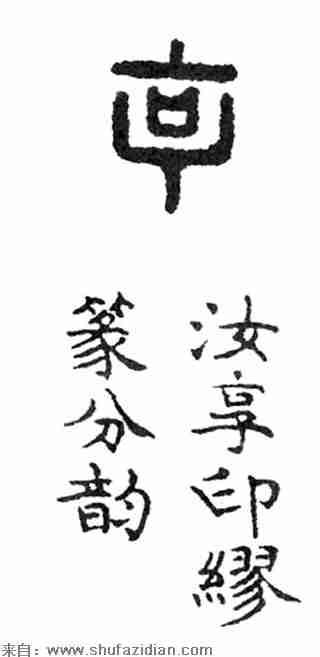 享
汝享印繆
篆分韵
来自：www.shufazidian.com